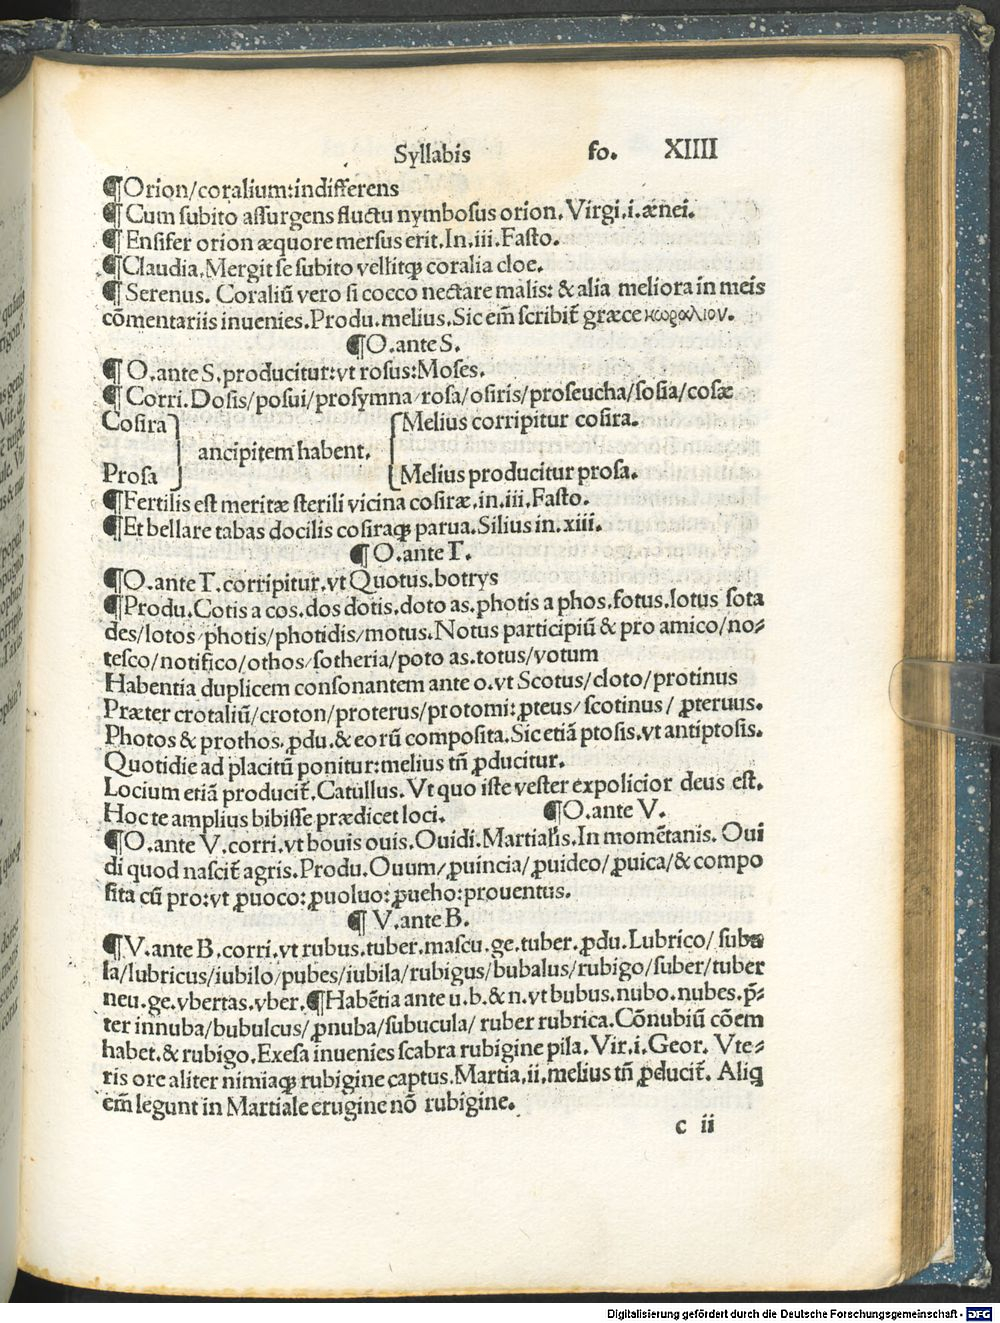 Syllabis fo. XIIII
¶Orion/coralium:indifferens
¶Cum ſubito aſſurgens fluctu nymboſus orion. Virgi.i.ænei.
¶Enſifer orion æquore merſus erit. In.iii.Faſto.
¶Claudia.Mergit ſe ſubito vellitꝙ coralia cloe.
¶Serenus. Coraliū vero ſi cocco nectare malis: & alia meliora in meis
cōmentariis inuenies.Produ.melius.Sic em̄ ſcribit̄ græce κωραλιον.
¶O.ante S.
¶O.ante S.producitur:vt roſus:Moſes.
¶Corri.Doſis/poſui/proſymna/roſa/oſiris/proſeucha/ſoſia/coſæ
Coſira Melius corripitur coſira.
ancipitem habent.
Proſa Melius producitur proſa.
¶Fertilis eſt meritæ ſterili vicina coſiræ.in.iii.Faſto.
¶Et bellare tabas docilis coſiraꝙ parua.Silius in.xiii.
¶O.ante T.
¶O.ante T.corripitur.vt Quotus.botrys
¶Produ.Cotis a cos.dos dotis.doto as.photis a phos.fotus.lotus ſota
des/lotos/photis/photidis/motus.Notus participiū & pro amico/no⸗
teſco/notifico/othos/ſotheria/poto as.totus/votum
Habentia duplicem conſonantem ante o.vt Scotus/cloto/protinus
Præter crotaliū/croton/proterus/protomi:ꝓteus/ſcotinus/ꝓteruus.
Photos & prothos.ꝓdu.& eorū compoſita.Sic etiā ptoſis.vt antiptoſis.
Quotidie ad placitū ponitur:melius tn̄ ꝓducitur.
Locium etiā producit̄.Catullus.Vt quo iſte veſter expolicior deus eſt.
Hoc te amplius bibiſſe prædicet loci. ¶O.ante V.
¶O.ante V.corri.vt bouis ouis.Ouidi.Martialis.In momētanis. Oui
di quod naſcit̄ agris.Produ.Ouum/ꝓuincia/ꝓuideo/ꝓuica/& compo
ſita cū pro:vt ꝓuoco:ꝓuoluo:ꝓueho:prouentus.
¶V.ante B.
¶V.ante B.corri.vt rubus.tuber.maſcu.ge.tuber.ꝓdu.Lubrico/ſubu
la/lubricus/iubilo/pubes/iubila/rubigus/bubalus/rubigo/ſuber/tuber
neu.ge.vbertas.vber.¶Habētia ante u.b.& n.vt bubus.nubo.nubes.p̄⸗
ter innuba/bubulcus/ꝓnuba/ſubucula/ruber rubrica.Cōnubiū cōem
habet.& rubigo.Exeſa inuenies ſcabra rubigine pila.Vir.i.Geor. Vte⸗
ris ore aliter nimiaꝙ rubigine captus.Martia.ii.melius tn̄ ꝓducit̄. Aliq
em̄ legunt in Martiale erugine nō rubigine.
c ii
Digitalisierung gefördert durch die Deutsche Forschungsgemeinschaft - DFG